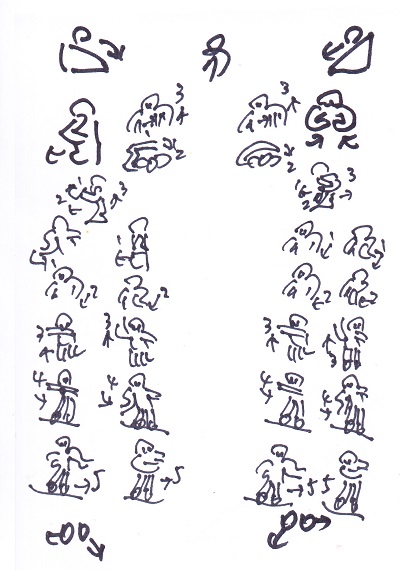 3 3
4
2 2
1 3 1 3
2 2
1 1 1 1
2 2 2 2
3 3 3 3
4 4 4 4
5 5 5 5